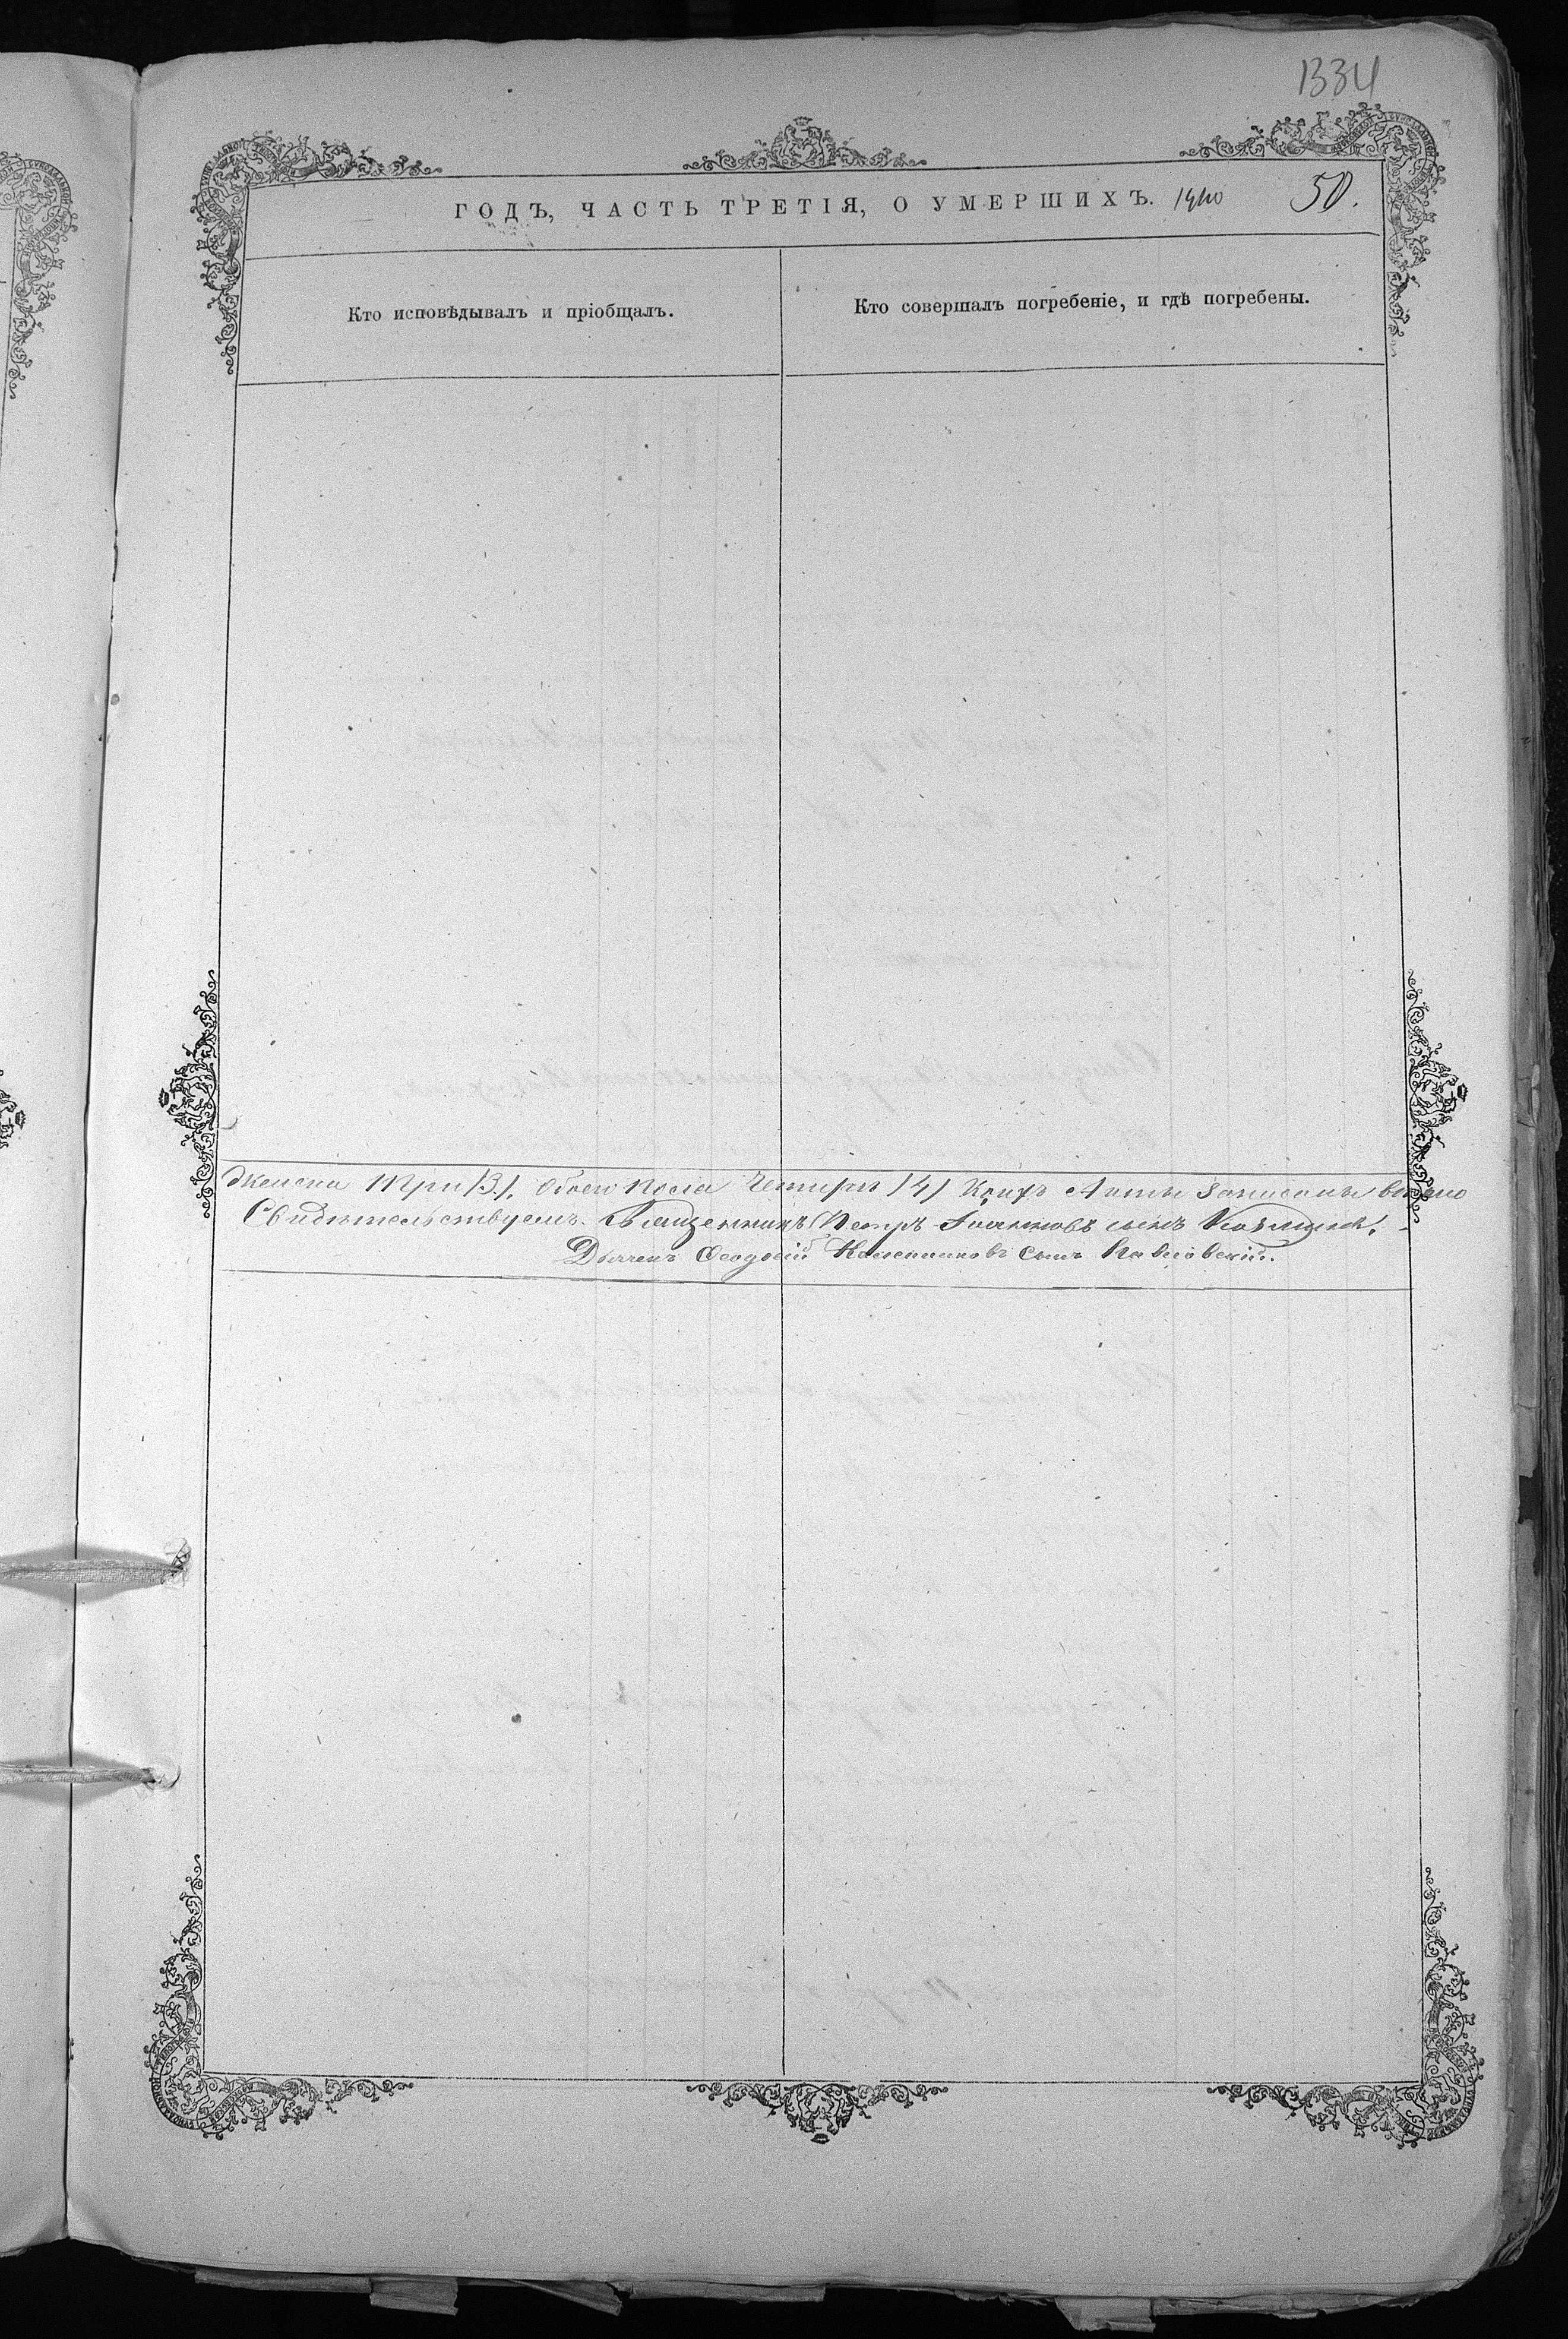 1334
ГОДЪ, ЧАСТЬ ТРЕТІЯ, О УМЕРШИХЪ. 50.
Кто исповѣдывалъ и пріобщалъ.
Кто совершалъ погребеніе, и гдѣ погребены.
женска три /3/. Обоего пола четыри /4/ записаны вѣрно
Свидѣтельствуемъ. Священникъ Петръ Іоанновъ сынъ
Дьячекъ Ѳеодосій сынъ Павловскій.